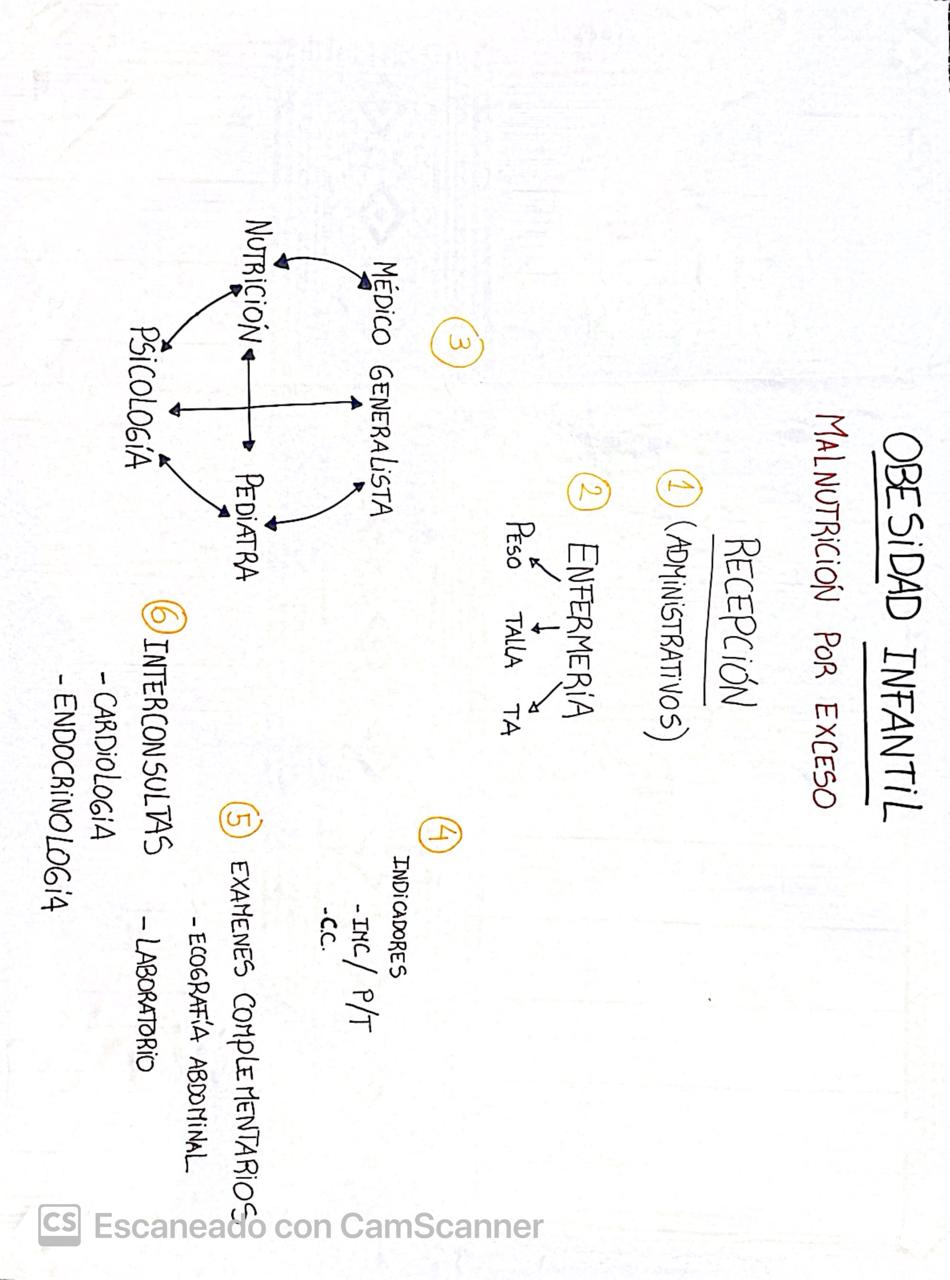 OBESIDAD INFANTIL
MALNUTRICIÓN POR EXCESO
RECEPCIÓN
1 (ADMINISTRATIVOS)
2 ENFERMERÍA
PESO TALLA TA
3
MÉDICO GENERALISTA
NUTRICIÓN PEDIATRA
PSICOLOGÍA
4
INDICADORES
- IMC / P/T
- C.C.
5 EXAMENES COMPLEMENTARIOS
- ECOGRAFÍA ABDOMINAL
- LABORATORIO
6 INTERCONSULTAS
- CARDIOLOGIA
- ENDOCRINOLOGÍA
CS Escaneado con CamScanner